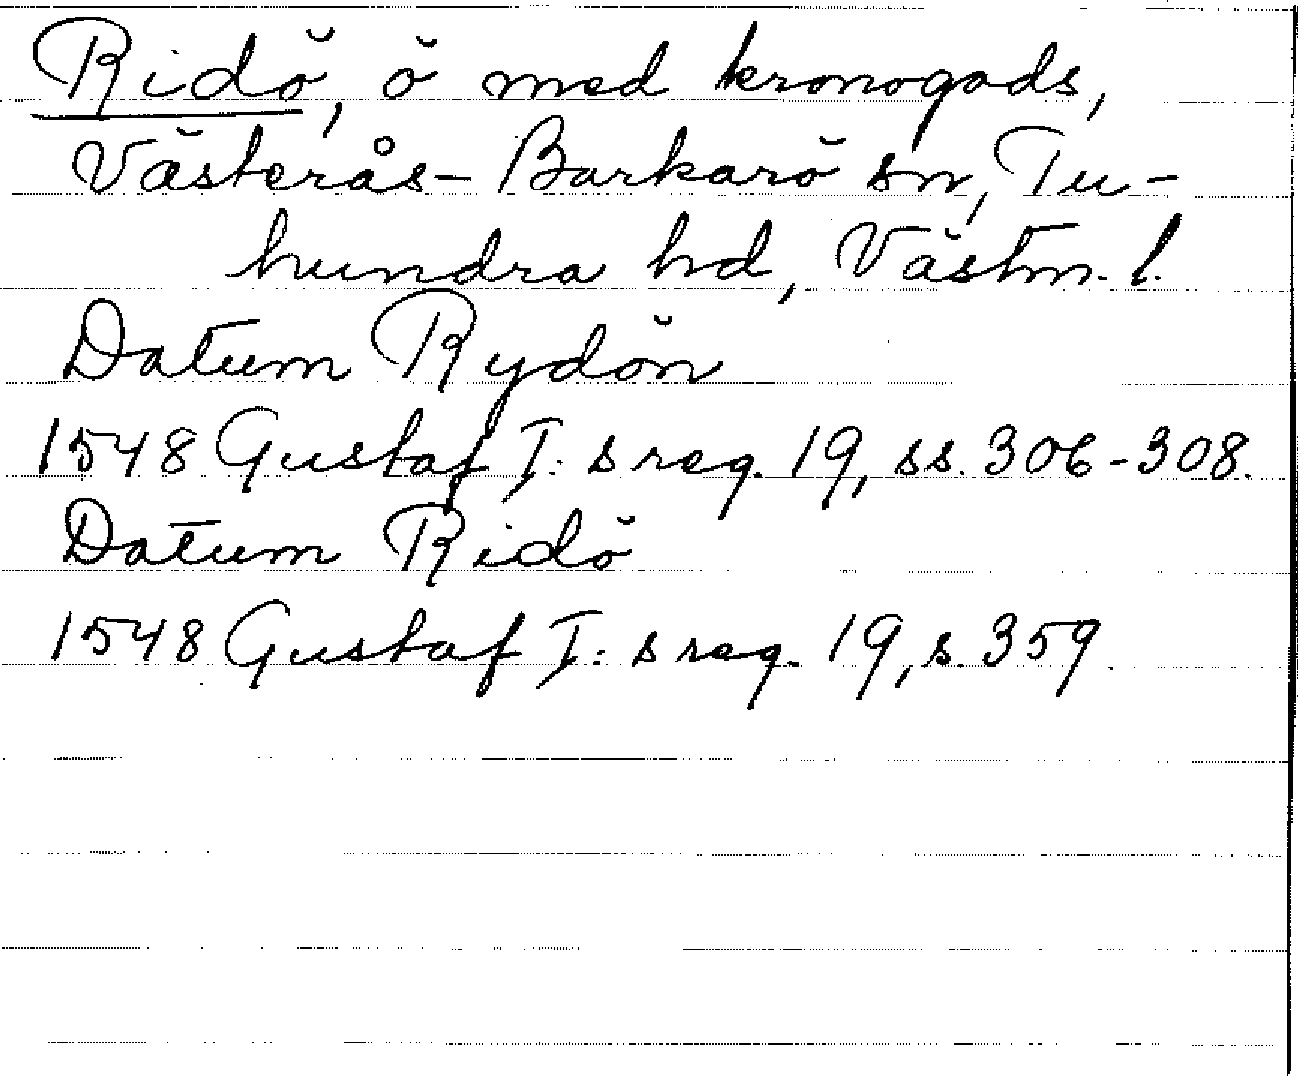 Ridö, ö med kronogods,
Västerås-Barkarö sn, Tu-
hundra hd, Västm. l.
Datum Rydön
1548 Gustaf I:s reg. 19, ss. 306-308.
Datum Ridö
1548 Gustaf I:s reg. 19, s. 359.